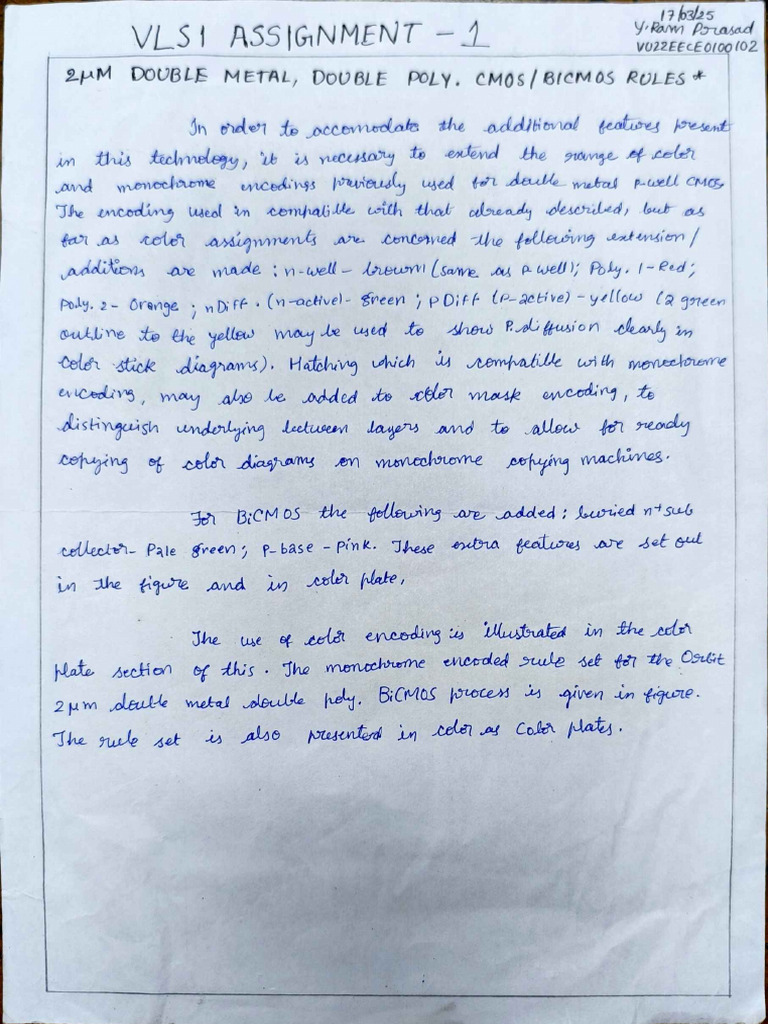 17/03/25
Y. Ram Prasad
VU22EECE0100102
VLSI ASSIGNMENT - 1
2μM DOUBLE METAL, DOUBLE POLY. CMOS/BICMOS RULES *
In order to accomodate the additional features present
in this technology, it is necessary to extend the range of color
and monochrome encodings previously used for double metal p-well CMOS.
The encoding used in compatible with that already described, but as
far as color assignments are concerned the following extension/
additions are made : n-well - brown (same as p well); Poly. 1 - Red;
Poly. 2 - Orange ; nDiff. (n-active) - green ; p Diff (p-active) - yellow (2 green
outline to the yellow may be used to show P.diffusion clearly in
color stick diagrams). Hatching which is compatible with monochrome
encoding, may also be added to color mask encoding, to
distinguish underlying between layers and to allow for ready
copying of color diagrams on monochrome copying machines.
For BiCMOS the following are added : buried n+ sub
collector - Pale green; p-base - Pink. These extra features are set out
in the figure and in color plate,
The use of color encoding is illustrated in the color
plate section of this. The monochrome encoded rule set for the Orbit
2μm double metal double poly. BiCMOS process is given in figure.
The rule set is also presented in color as Color plates.